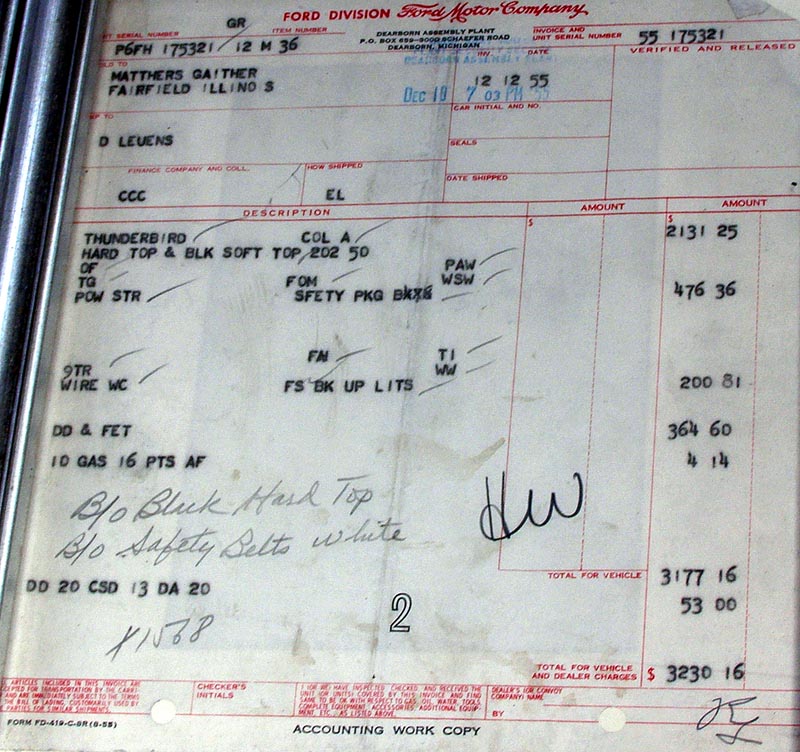 GR
FORD DIVISION Ford Motor Company
DEARBORN ASSEMBLY PLANT
P.O. BOX 659-3000 SCHAEFER ROAD
DEARBORN, MICHIGAN
SERIAL NUMBER
ITEM NUMBER
INVOICE AND
UNIT SERIAL NUMBER
55 175321
P6FH 175321 12 M 36
VERIFIED AND RELEASED
DEARBORN ASSEMBLY PLANT
INV. DATE
MATTHERS GAITHER
FAIRFIELD ILLINO S
12 12 55
7 03 PM 55
CAR INITIAL AND NO.
D LEUENS
SEALS
FINANCE COMPANY AND COLL.
HOW SHIPPED
DATE SHIPPED
CCC
EL
DESCRIPTION
AMOUNT
AMOUNT
$
$
THUNDERBIRD COL A 2131 25
HARD TOP & BLK SOFT TOP 202 50
OF PAW
TG FOM WSW
POW STR SFETY PKG 476 36
9TR FN TI
WIRE WC FS BK UP LITS WW 200 81
DD & FET 364 60
10 GAS 16 PTS AF 4 14
B/o Black Hard Top
HW
B/o Safety Belts White
TOTAL FOR VEHICLE 3177 16
DD 20 CSD 13 DA 20
53 00
2
X1568
TOTAL FOR VEHICLE
AND DEALER CHARGES $ 3230 16
ARTICLES INCLUDED IN THIS INVOICE ARE
CEPTED FOR TRANSPORTATION BY THE CARRI-
AND ARE IMMEDIATELY SUBJECT TO THE TERMS
THE BILL OF LADING, CUSTOMARILY USED BY
PARTIES FOR SIMILAR SHIPMENTS.
CHECKER'S
INITIALS
I (OR WE) HAVE INSPECTED CHECKED AND RECEIVED THE
UNIT (OR UNITS) COVERED BY THIS INVOICE AND FIND
SAME TO BE OK WITH RESPECT TO GAS, OIL, WATER, TOOLS,
COMPLETE EQUIPMENT, ACCESSORIES, ADDITIONAL EQUIP-
MENT, ETC., AS LISTED ABOVE.
DEALER'S (OR CONVOY
COMPANY) NAME
BY
FORM FD-419-C-8R (8-55)
ACCOUNTING WORK COPY